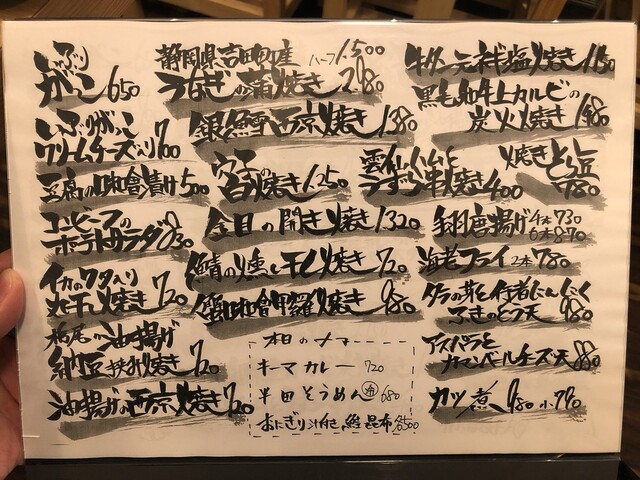 いぶり
がっこ 650
いぶりがっこ
クリームチーズ入り 700
豆腐の味噌漬け 500
コンビーフの
ポテトサラダ 830
イカのワタ入り
丸干し焼き 720
栃尾の油揚げ
納豆挟み焼き 720
油揚げの西京焼き 720
静岡県吉田町産 ハーフ 1.500
うなぎの蒲焼き 2.980
銀鱈西京焼き 1.380
穴子の
白焼き 1.250
雲仙ハムと
うずら串焼き 400
金目の開き焼き 1.320
鯖の燻し干し焼き 720
蟹味噌甲羅焼き 980
本日の〆
キーマカレー 720
半田そうめん 冷 680
おにぎり 汁付き 鮭 昆布 各500
牛タン元 ネギ塩焼き 1.150
黒毛和牛上カルビの
炭火焼き 1.980
焼きとん
780
手羽唐揚げ 4本 730
6本 870
海老フライ 2本 780
タラの芽と行者にんにく
ふきのとう天 980
アスパラと
カマンベールチーズ天 880
カツ煮 980 小 770